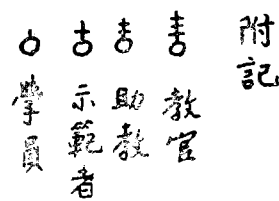 附記
教官
助教
示範者
學員